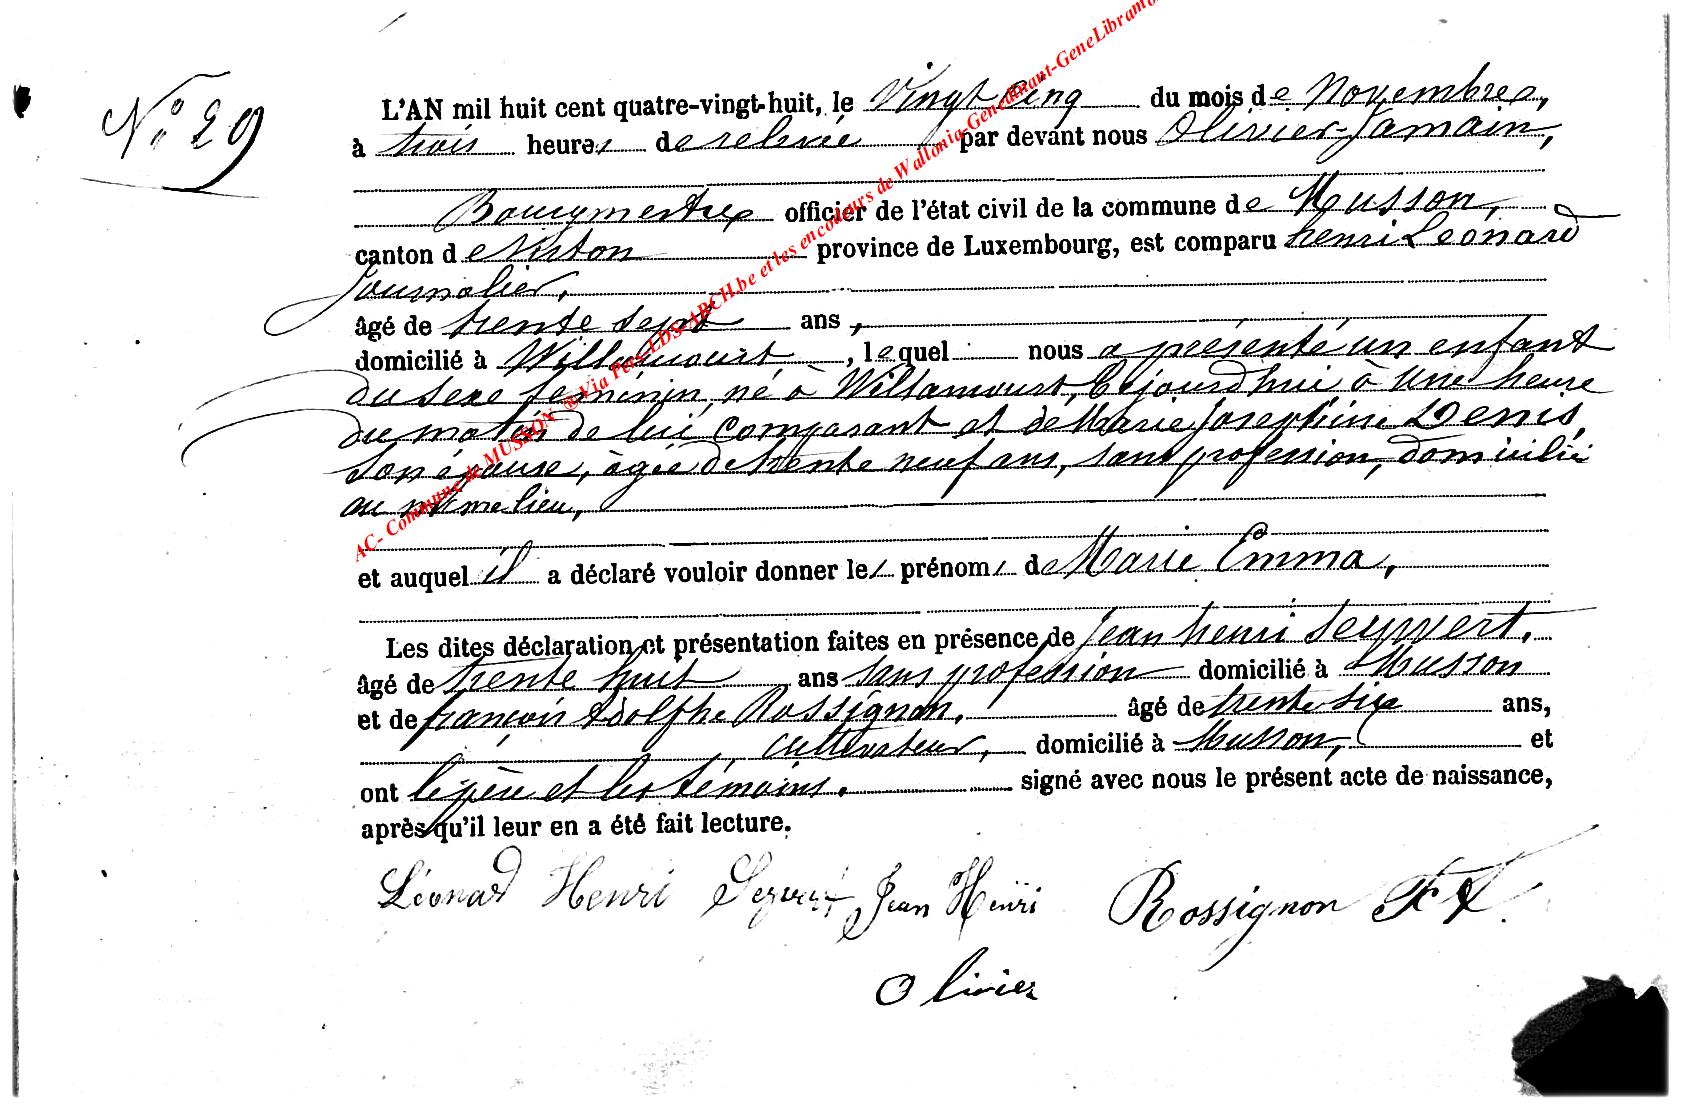 N° 29
L'AN mil huit cent quatre-vingt-huit, le Vingt Cinq du mois de Novembre,
à trois heures de relevée par devant nous Olivier-Jamain,
Bourgmestre officier de l'état civil de la commune de Musson,
canton de Virton province de Luxembourg, est comparu henri Léonard
Journalier,
âgé de trente sept ans,
domicilié à Willancourt, lequel nous a présenté un enfant
du sexe féminin, né à Willancourt, Cejourd'hui à Une heure
du matin de lui comparant et de Marie Joséphine Denis,
Son épouse, âgée de trente neuf ans, sans profession, domiciliée
au même lieu,
et auquel il a déclaré vouloir donner les prénoms de Marie Emma,
Les dites déclaration et présentation faites en présence de Jean henri Seywert,
âgé de trente huit ans sans profession domicilié à Musson
et de françois Adolphe Rossignon, âgé de trente six ans,
cultivateur, domicilié à Musson, et
ont le père et les témoins. signé avec nous le présent acte de naissance,
après qu'il leur en a été fait lecture.
Léonard Henri Seywert Jean Henri Rossignon F A.
Olivier
AC- Commune de MUSSON ®Via Pers-LDS-ARCH.be et les encodeurs de Wallonia-Genealinant-GeneLibramo